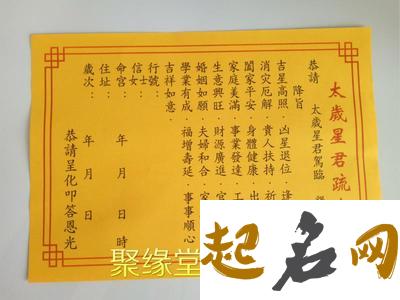 太歲星君疏
恭請　太歲星君駕臨
降旨
吉星高照．凶星退位．逢
消灾厄解．貴人扶持．祈
闔家平安．身體健康．出
家庭美滿．事業發達．工
生意興旺．財源廣進．官
婚姻如願．夫婦和合．家
學業有成．福增壽延．事事順心
吉祥如意．
行號：
信女：
命宮：　年　月　日　時
住址：
歲次：　年　月　日
恭請呈化叩答恩光
聚缘堂
起名网